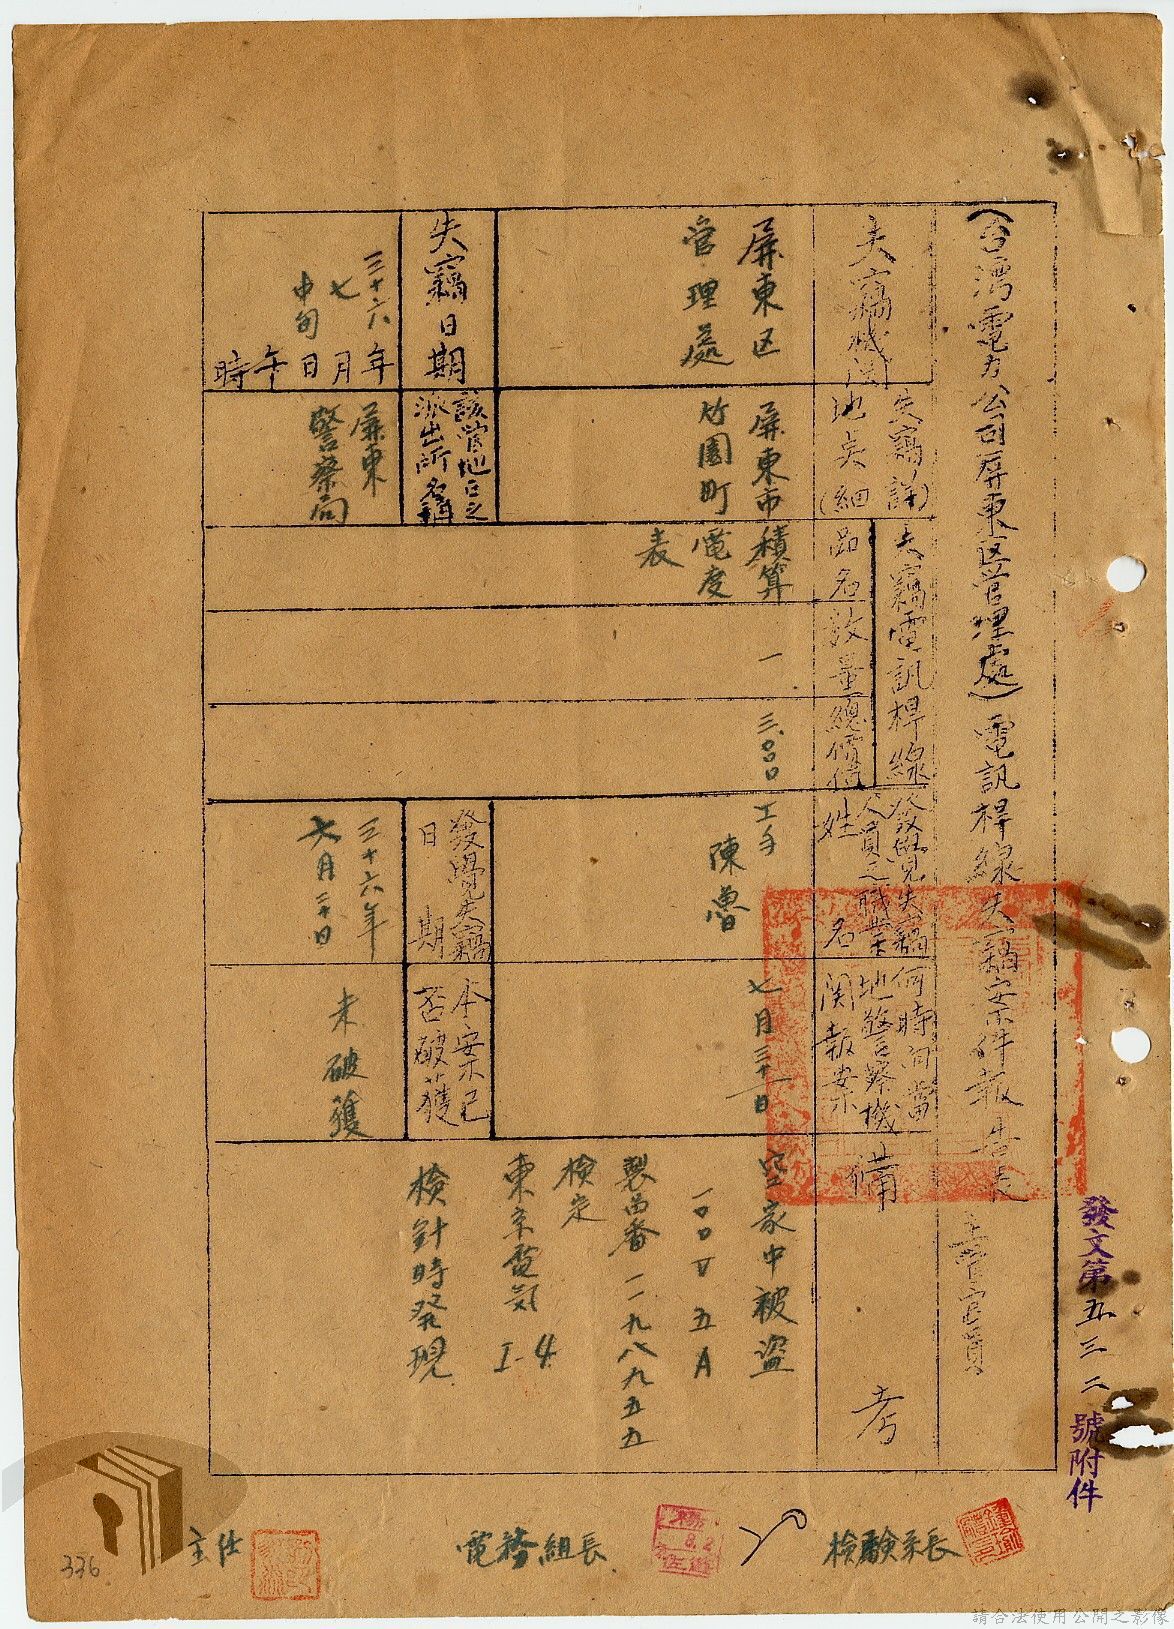 發文第五三二號附件
(台湾電力公司屏東区管理處)電訊桿線失竊案件報告表
主管官員
失竊機関
失竊詳
地点(細)
失竊電訊桿線
品名
数量
總價值
發覺失竊
人員之職業
姓名
何時向當
地警察機
関報案
備考
屏東区
管理處
屏東市
竹園町
積算
電度
表
一
三,〇〇〇
工手
陳魯
七月三十一日
空家中被盜
一〇〇V五A
製品番一一九八九五五
検定
東京電気I-4
検針時発現
失竊日期
該管地区之
派出所名稱
發覺失竊
日期
本案已
否破獲
三十六年
七月
中旬日
午時
屏東
警察局
三十六年
七月三十日
未破獲
検驗系長
楊
8.2
電務組長
主任
336
請合法使用公開之影像